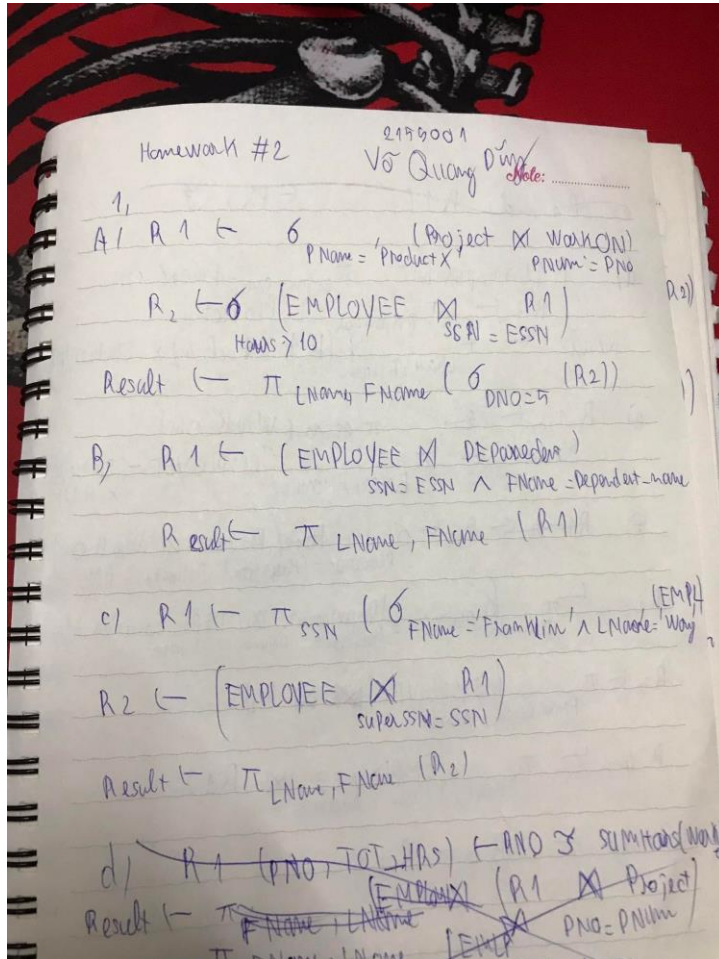 Homework #2
2199001
Võ Quang Dũng
Note:
1,
A/ R1 ← σ PName = 'ProductX' (Project ⋈ WorkON) PNum = PNO
R2 ← σ Hours ≥ 10 (EMPLOYEE ⋈ SSN = ESSN R1)
R2)
Result ← π LName, FName (σ DNO=5 (R2))
)
B, R1 ← (EMPLOYEE ⋈ SSN = ESSN ∧ FName = Dependent_name
Result ← π LName, FName (R1)
c) R1 ← π SSN (σ FName = 'Framklin' ∧ LName = 'Wong (EMPL)
R2 ← (EMPLOYEE ⋈ superSSN = SSN R1)
Result ← π LName, FName (R2)
d) R1 (PNO, TOT_HRS) ← PNO
Result ← π FName, LName (R1 ⋈ PNO = PNum Project)